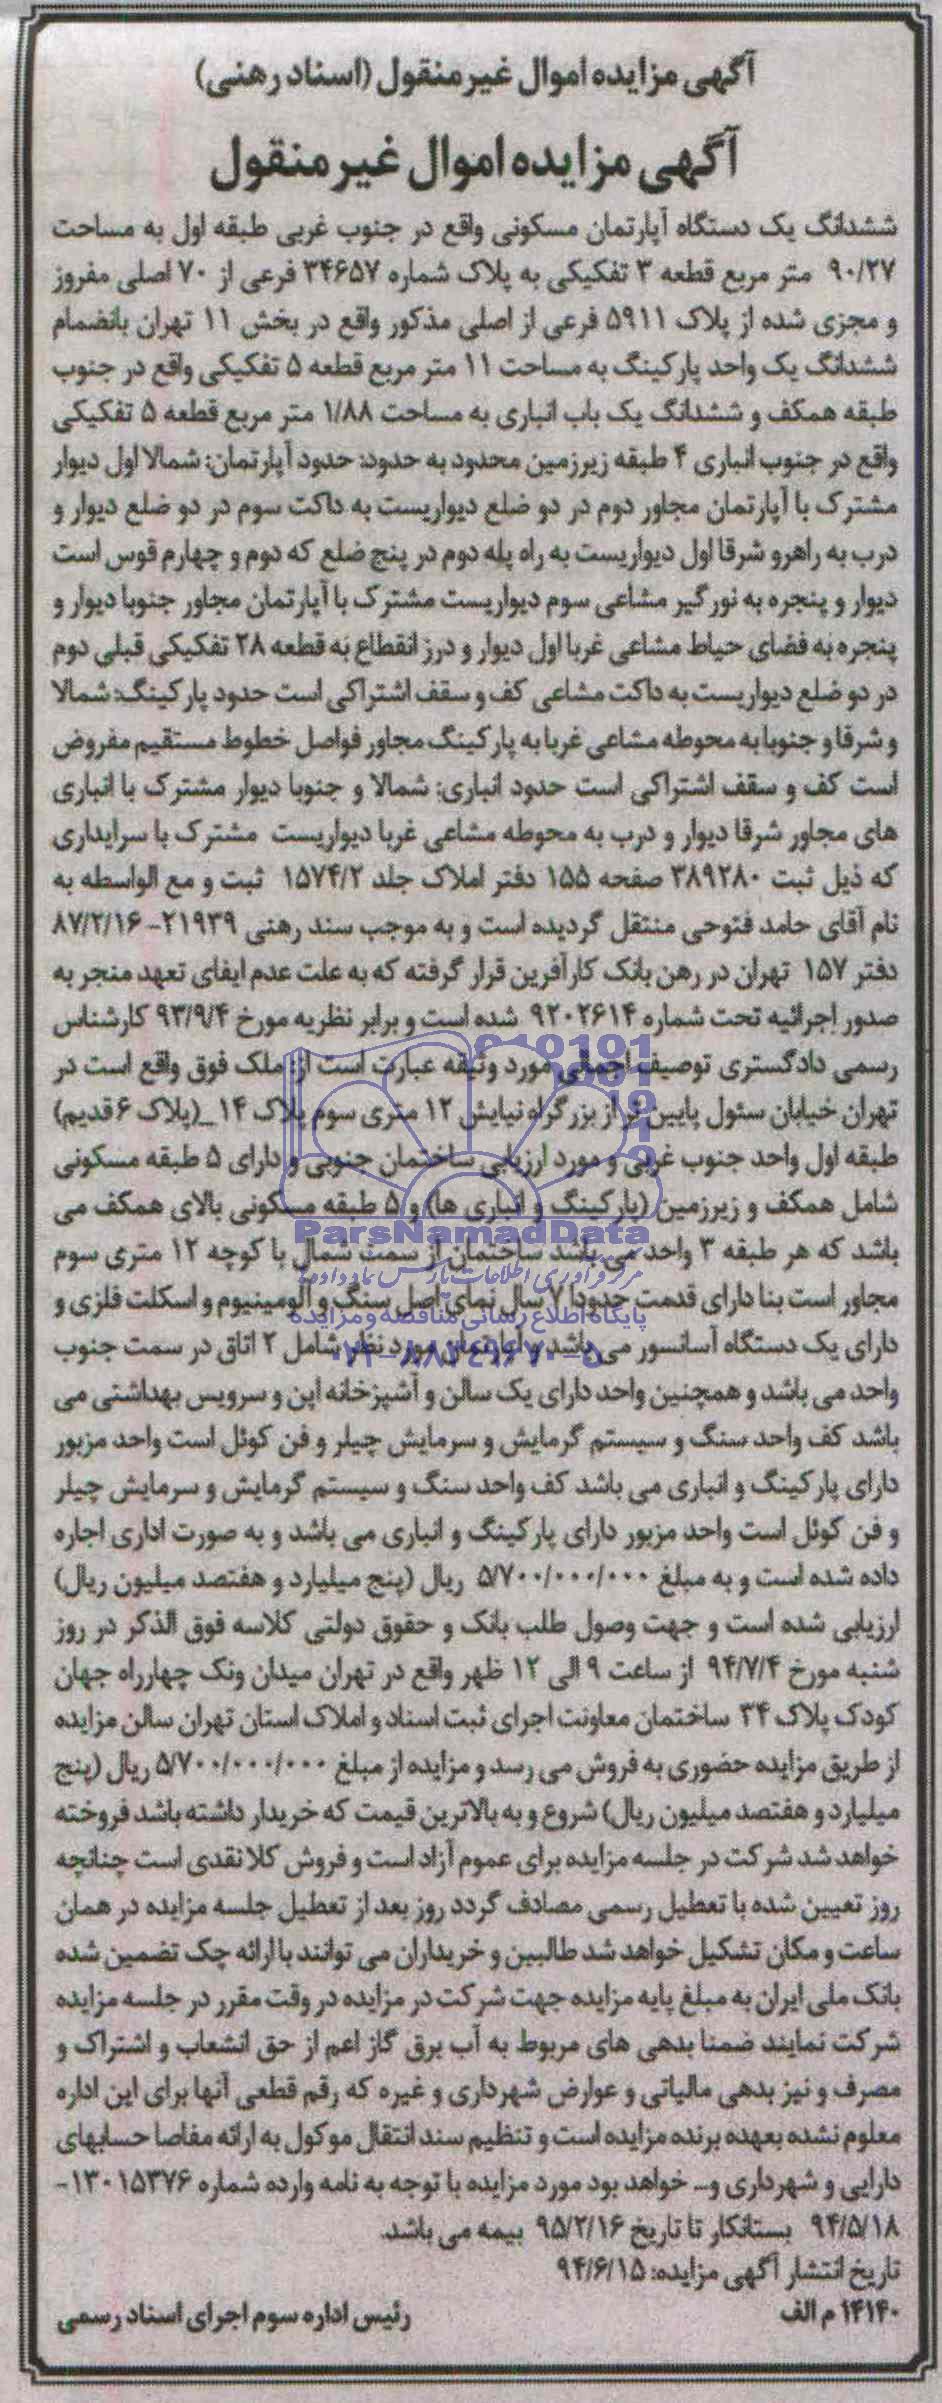 آگهی مزایده اموال غیرمنقول (اسناد رهنی)
آگهی مزایده اموال غیر منقول
ششدانگ یک دستگاه آپارتمان مسکونی واقع در جنوب غربی طبقه اول به مساحت
۹۰/۲۷ متر مربع قطعه ۳ تفکیکی به پلاک شماره ۳۴۶۵۷ فرعی از ۷۰ اصلی مفروز
و مجزی شده از پلاک ۵۹۱۱ فرعی از اصلی مذکور واقع در بخش ۱۱ تهران بانضمام
ششدانگ یک واحد پارکینگ به مساحت ۱۱ متر مربع قطعه ۵ تفکیکی واقع در جنوب
طبقه همکف و ششدانگ یک باب انباری به مساحت ۱/۸۸ متر مربع قطعه ۵ تفکیکی
واقع در جنوب انباری ۴ طبقه زیرزمین محدود به حدود: حدود آپارتمان: شمالا اول دیوار
مشترک با آپارتمان مجاور دوم در دو ضلع دیواریست به داکت سوم در دو ضلع دیوار و
درب به راهرو شرقا اول دیواریست به راه پله دوم در پنج ضلع که دوم و چهارم قوس است
دیوار و پنجره به نورگیر مشاعی سوم دیواریست مشترک با آپارتمان مجاور جنوبا دیوار و
پنجره به فضای حیاط مشاعی غربا اول دیوار و درز انقطاع به قطعه ۲۸ تفکیکی قبلی دوم
در دو ضلع دیواریست به داکت مشاعی کف و سقف اشتراکی است حدود پارکینگ: شمالا
و شرقا و جنوبا به محوطه مشاعی غربا به پارکینگ مجاور فواصل خطوط مستقیم مفروض
است کف و سقف اشتراکی است حدود انباری: شمالا و جنوبا دیوار مشترک با انباری
های مجاور شرقا دیوار و درب به محوطه مشاعی غربا دیواریست مشترک با سرایداری
که ذیل ثبت ۳۸۹۲۸۰ صفحه ۱۵۵ دفتر املاک جلد ۱۵۷۴/۲ ثبت و مع الواسطه به
نام آقای حامد فتوحی منتقل گردیده است و به موجب سند رهنی ۲۱۹۳۹-۸۷/۲/۱۶
دفتر ۱۵۷ تهران در رهن بانک کارآفرین قرار گرفته که به علت عدم ایفای تعهد منجر به
صدور اجرائیه تحت شماره ۹۲۰۲۶۱۴ شده است و برابر نظریه مورخ ۹۳/۹/۴ کارشناس
رسمی دادگستری توصیف اجمالی مورد وثیقه عبارت است از: ملک فوق واقع است در
تهران خیابان سئول پایین تر از بزرگراه نیایش ۱۲ متری سوم پلاک ۱۴_(پلاک ۶ قدیم)
طبقه اول واحد جنوب غربی و مورد ارزیابی ساختمان جنوبی و دارای ۵ طبقه مسکونی
شامل همکف و زیرزمین (پارکینگ و انباری ها) و ۵ طبقه مسکونی بالای همکف می
ParsNamadData
باشد که هر طبقه ۳ واحد می باشد ساختمان از سمت شمال با کوچه ۱۲ متری سوم
مرکز فرآوری اطلاعات پارس نماد داده ها
مجاور است بنا دارای قدمت حدودا ۷ سال نمای اصل سنگ و آلومینیوم و اسکلت فلزی و
پایگاه اطلاع رسانی مناقصه و مزایده
دارای یک دستگاه آسانسور می باشد و آپارتمان مورد نظر شامل ۲ اتاق در سمت جنوب
۰۲۱-۸۸۳۴۹۶۷۰-۵
واحد می باشد و همچنین واحد دارای یک سالن و آشپزخانه اپن و سرویس بهداشتی می
باشد کف واحد سنگ و سیستم گرمایش و سرمایش چیلر و فن کوئل است واحد مزبور
دارای پارکینگ و انباری می باشد کف واحد سنگ و سیستم گرمایش و سرمایش چیلر
و فن کوئل است واحد مزبور دارای پارکینگ و انباری می باشد و به صورت اداری اجاره
داده شده است و به مبلغ ۵/۷۰۰/۰۰۰/۰۰۰ ریال (پنج میلیارد و هفتصد میلیون ریال)
ارزیابی شده است و جهت وصول طلب بانک و حقوق دولتی کلاسه فوق الذکر در روز
شنبه مورخ ۹۴/۷/۴ از ساعت ۹ الی ۱۲ ظهر واقع در تهران میدان ونک چهارراه جهان
کودک پلاک ۳۴ ساختمان معاونت اجرای ثبت اسناد و املاک استان تهران سالن مزایده
از طریق مزایده حضوری به فروش می رسد و مزایده از مبلغ ۵/۷۰۰/۰۰۰/۰۰۰ ریال (پنج
میلیارد و هفتصد میلیون ریال) شروع و به بالاترین قیمت که خریدار داشته باشد فروخته
خواهد شد شرکت در جلسه مزایده برای عموم آزاد است و فروش کلا نقدی است چنانچه
روز تعیین شده با تعطیل رسمی مصادف گردد روز بعد از تعطیل جلسه مزایده در همان
ساعت و مکان تشکیل خواهد شد طالبین و خریداران می توانند با ارائه چک تضمین شده
بانک ملی ایران به مبلغ پایه مزایده جهت شرکت در مزایده در وقت مقرر در جلسه مزایده
شرکت نمایند ضمنا بدهی های مربوط به آب برق گاز اعم از حق انشعاب و اشتراک و
مصرف و نیز بدهی مالیاتی و عوارض شهرداری و غیره که رقم قطعی آنها برای این اداره
معلوم نشده بعهده برنده مزایده است و تنظیم سند انتقال موکول به ارائه مفاصا حسابهای
دارایی و شهرداری و... خواهد بود مورد مزایده با توجه به نامه وارده شماره ۱۳۰۱۵۳۷۶-
۹۴/۵/۱۸ بستانکار تا تاریخ ۹۵/۲/۱۶ بیمه می باشد.
تاریخ انتشار آگهی مزایده: ۹۴/۶/۱۵
۱۴۱۴۰ م الف
رئیس اداره سوم اجرای اسناد رسمی